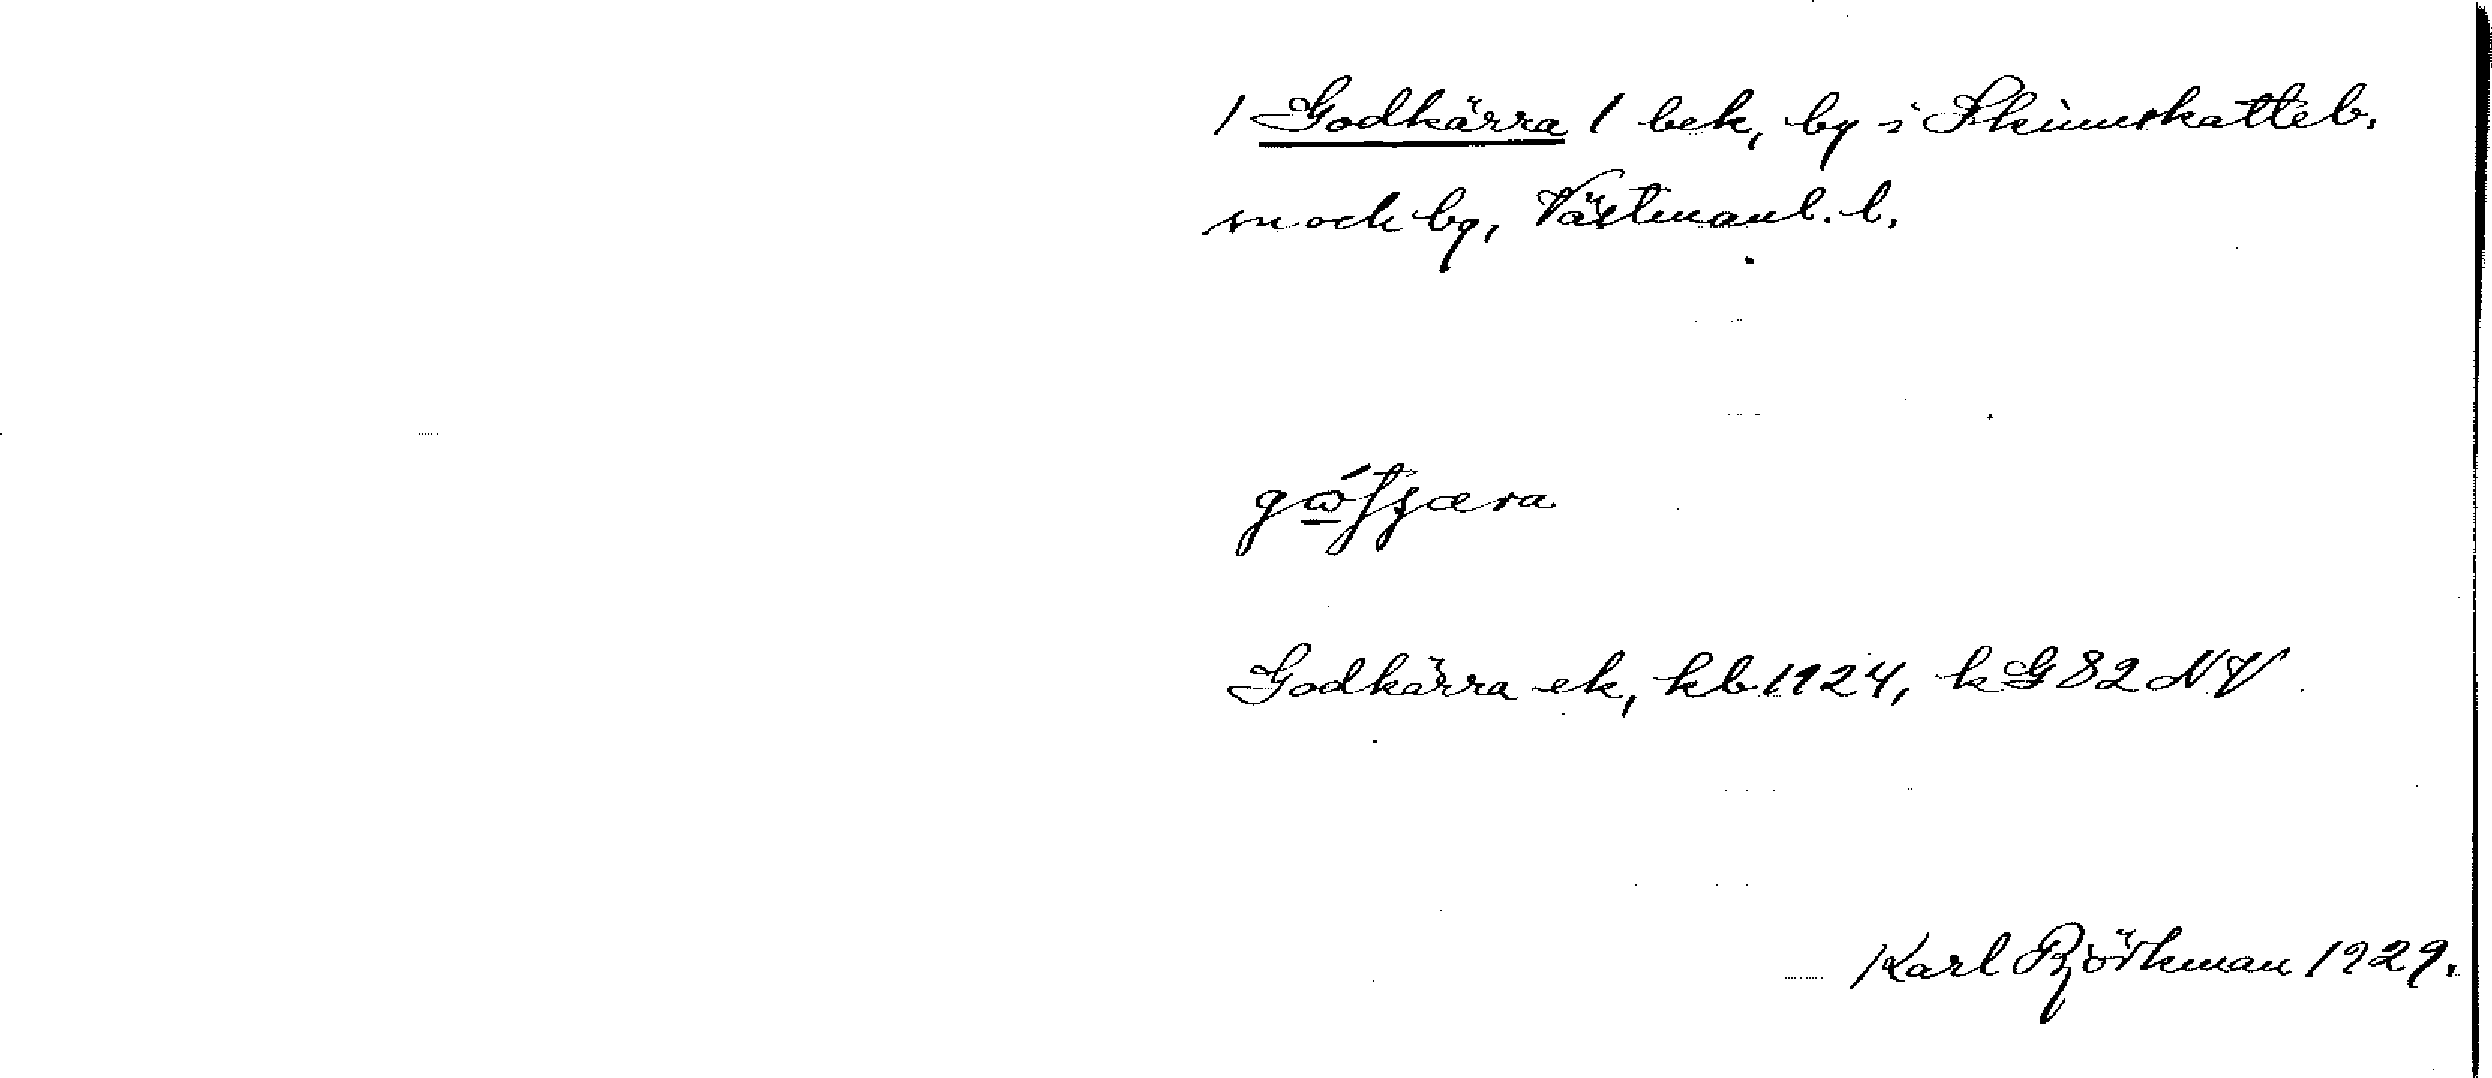 / Godkärra / bek, by i Skinnskatteb.
sn och bg, Västmanl. l.
Godkärra ek, kb 1924, k G 82 NV
Karl Björkman 1929.